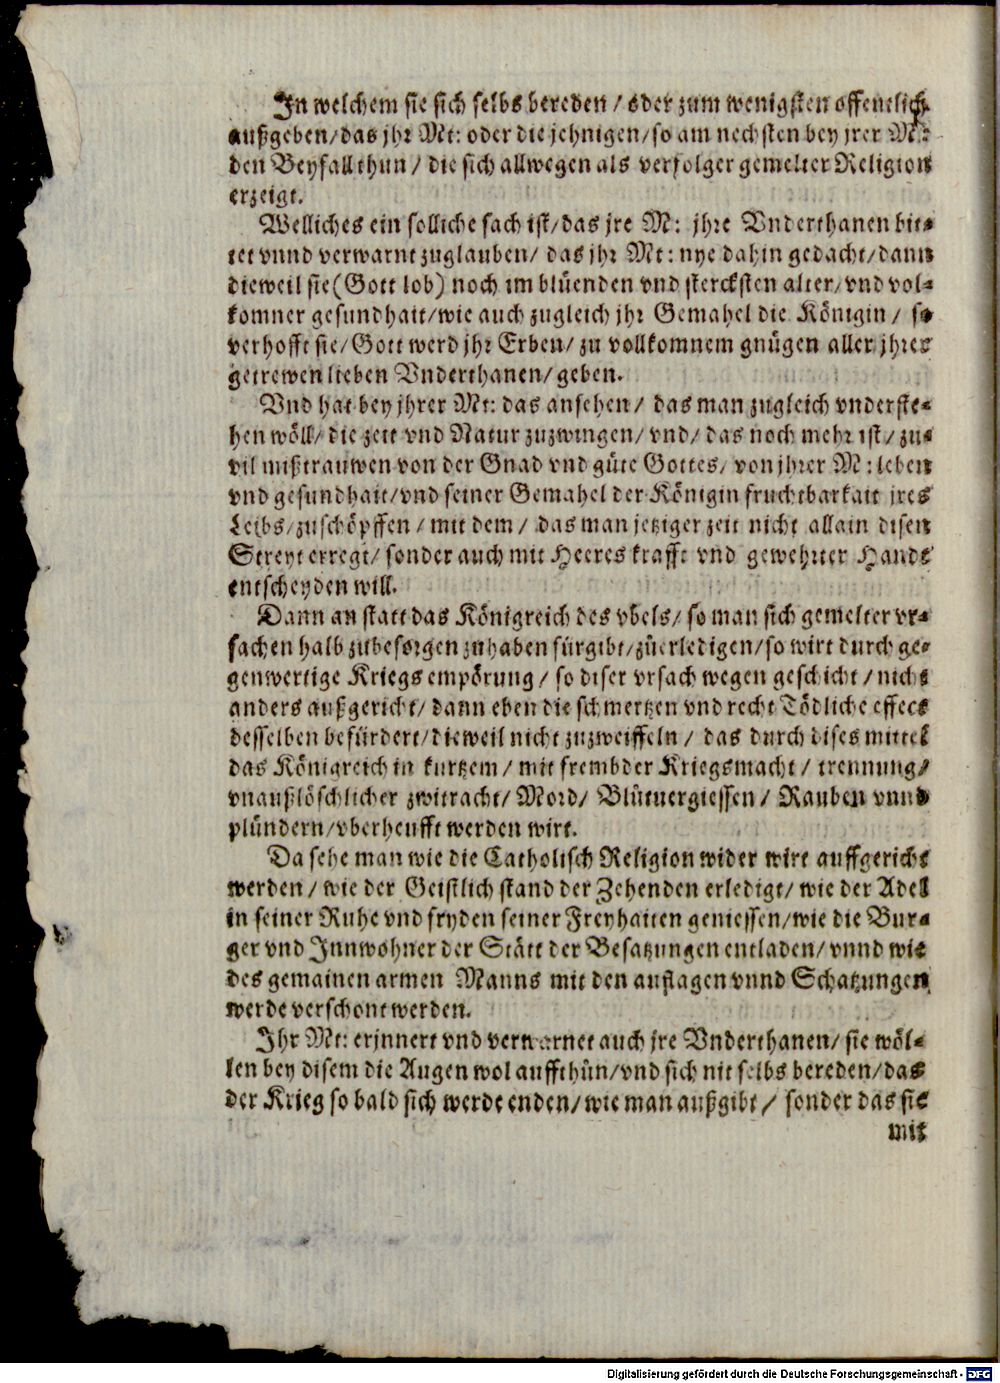 In welchem sie sich selbs bereden / oder zum wenigsten offentlich
außgeben / das jhr Mt: oder die jehnigen / so am nechsten bey jrer M:
den Beyfall thun / die sich allwegen als verfolger gemelter Religion
erzeigt.
Welliches ein solliche sach ist / das jre M: jhre Vnderthanen bit-
tet vnnd verwarnt zuglauben / das jhr Mt: nye dahin gedacht / dann
dieweil sie (Gott lob) noch im blüenden vnd stercksten alter / vnd vol-
komner gesundhait / wie auch zugleich jhr Gemahel die Königin / so
verhofft sie / Gott werd jhr Erben / zu vollkomnem gnügen aller jhrer
getrewen lieben Vnderthanen / geben.
Vnd hat bey jhrer Mt: das ansehen / das man zugleich vnderste-
hen wöll / die zeit vnd Natur zuzwingen / vnd / das noch mehr ist / zu-
vil mißtrauwen von der Gnad vnd güte Gottes / von jhrer M: leben
vnd gesundhait / vnd seiner Gemahel der Königin fruchtbarkait jres
Leibs / zuschöpffen / mit dem / das man jetziger zeit nicht allain disen
Streyt erregt / sonder auch mit Heereskrafft vnd gewehrter Handt
entscheyden will.
Dann an statt das Königreich des vbels / so man sich gemelter vr-
sachen halb zubesorgen zuhaben fürgibt / zůerledigen / so wirt durch ge-
genwertige Kriegsempörung / so diser vrsach wegen geschicht / nichs
anders außgericht / dann eben die schmertzen vnd recht Tödliche effect
desselben befürdert / dieweil nicht zuzweiffeln / das durch dises mittel
das Königreich in kurtzem / mit frembder Kriegsmacht / trennung /
vnaußlöschlicher zwitracht / Mord / Blůtuergiessen / Rauben vnnd
plündern / vberheufft werden wirt.
Da sehe man wie die Catholisch Religion wider wirt auffgericht
werden / wie der Geistlich stand der Zehenden erledigt / wie der Adel
in seiner Ruhe vnd fryden seiner Freyhaiten geniessen / wie die Bur-
ger vnd Innwohner der Stätt der Besatzungen entladen / vnnd wie
des gemainen armen Manns mit den auflagen vnnd Schatzungen
werde verschont werden.
Ihr Mt: erjnnert vnd verwarnet auch jre Vnderthanen / sie wöl-
len bey disem die Augen wol auffthůn / vnd sich nit selbs bereden / das
der Krieg so bald sich werde enden / wie man außgibt / sonder das sie
mit
Digitalisierung gefördert durch die Deutsche Forschungsgemeinschaft - DFG